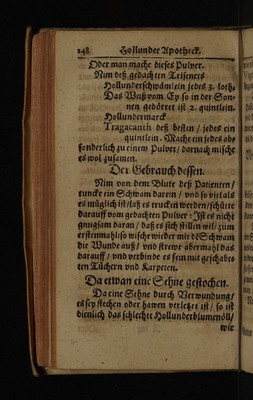 248 Hollunder Apotheck.
Oder man mache dieses Pulver.
Nim deß gedachten Triseners
Hollunderschwämlein jedes 3. loth,
Das Wuß vom Ey so in der Son-
nen gedörret ist 2. quintlein.
Hollundermarck
Tragacanth deß besten / jedes ein
quintlein. Mache ein jedes abs
sonderlich zu einem Pulver / darnach mische
es wol zusamen.
Der Gebrauch dessen.
Nim von dem Blute deß Patienten /
tuncke ein Schwam darein / und so viel als
es müglich ist / laß es trucken werden / schütte
darauff vom gedachten Pulver: Ist es nicht
gnugsam daran / daß es sich stillen wil / zum
ersten mahl / so wische wieder mit dē Schwam
die Wunde auß / und strewe abermahl das
darauff / und verbinde es fein mit geschabten
Tüchern und Karpeten.
Da etwan eine Sehne gestochen.
Da eine Sehne durch Verwundung
es sey stechen oder hawen verletzt ist / so ist
dienlich das schlechte Hollunderblumenöll /
wie